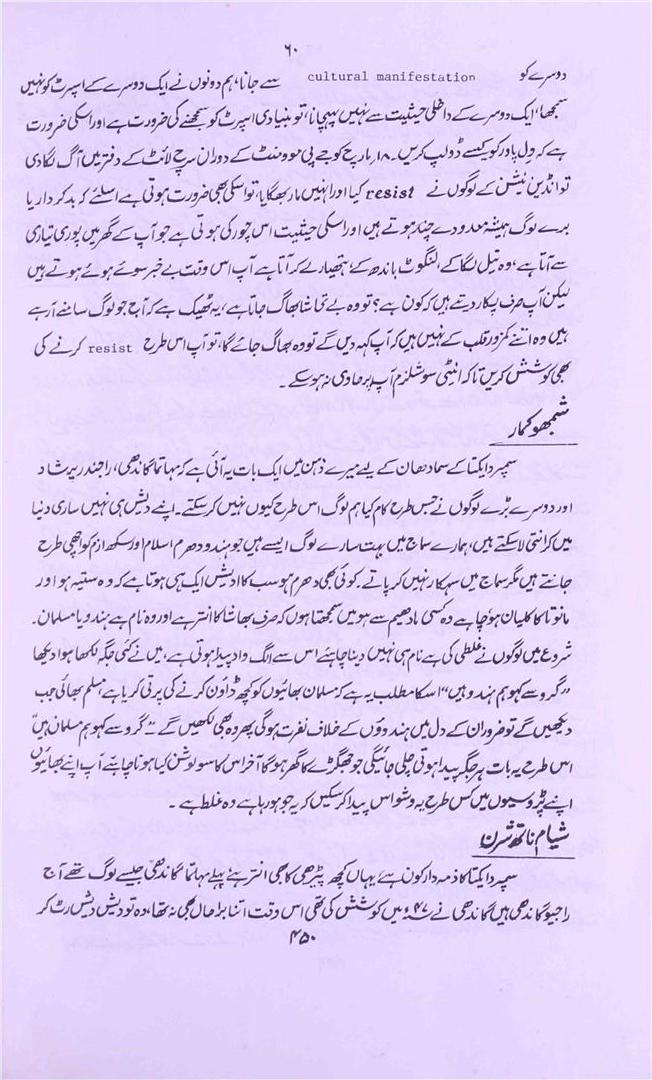 ۶۰
دوسرے کو cultural manifestation سے جانا، ہم دونوں نے ایک دوسرے کے اسپرٹ کو نہیں
سمجھا، ایک دوسرے کے داخلی حیثیت سے نہیں پہچانا، تو بنیادی اسپرٹ کو سمجھنے کی ضرورت ہے اور اسکی ضرورت
ہے کہ وِل پاور کو کیسے ڈولپ کریں۔ ۱۸ مارچ کو جے پی موومنٹ کے دوران سرچ لائٹ کے دفتر میں آگ لگا دی
تو انڈین نیشن کے لوگوں نے resist کیا اور انہیں مار بھگایا، تو اسکی بھی ضرورت ہوتی ہے اسلئے کہ بد کردار یا
برے لوگ ہمیشہ معدودے چند ہوتے ہیں اور اسکی حیثیت اس چور کی ہوتی ہے جو آپ کے گھر میں پوری تیاری
سے آتا ہے، وہ تیل لگا کے، لنگوٹ باندھ کے، ہتھیار لے کر آتا ہے آپ اس وقت بے خبر سوئے ہوئے ہوتے ہیں
لیکن آپ صرف پکار دیتے ہیں کہ کون ہے؟ تو وہ بے تحاشا بھاگ جاتا ہے، یہ ٹھیک ہے کہ آج جو لوگ سامنے آرہے
ہیں وہ اتنے کمزور قلب کے نہیں ہیں کہ آپ کہہ دیں گے تو وہ بھاگ جائے گا، تو آپ اس طرح resist کرنے کی
بھی کوشش کریں تاکہ انٹی سوشلزم آپ پر حاوی نہ ہو سکے۔
شمبھو کمار
سمپردایکتا کے سمادھان کے لیے میرے ذہن میں ایک بات یہ آئی ہے کہ مہاتما گاندھی، راجندر پرشاد
اور دوسرے بڑے لوگوں نے جس طرح کام کیا ہم لوگ اس طرح کیوں نہیں کر سکتے۔ اپنے دیش ہی نہیں ساری دنیا
میں کرانتی لا سکتے ہیں، ہمارے سماج میں بہت سارے لوگ ایسے ہیں جو ہندو دھرم اسلام اور سکھ ازم کو اچھی طرح
جانتے ہیں مگر سماج میں سہکار نہیں کر پاتے۔ کوئی بھی دھرم ہو سب کا ادیش ایک ہی ہوتا ہے کہ وہ ستیہ ہو اور
مانوتا کا کلیان ہو چاہے وہ کسی مادھیم سے ہو میں سمجھتا ہوں کہ صرف بھاشا کا انتر ہے اور وہ نام ہے ہندو یا مسلمان۔
شروع میں لوگوں نے غلطی کی ہے نام ہی نہیں دینا چاہئے اس سے الگ واد پیدا ہوتی ہے، میں نے کئی جگہ لکھا ہوا دیکھا
”گرو سے کہو ہم ہندو ہیں“ اسکا مطلب یہ ہے کہ مسلمان بھائیوں کو کچھ ڈاؤن کرنے کی پرتی کریا ہے، مسلم بھائی جب
دیکھیں گے تو ضرور ان کے دل میں ہندوؤں کے خلاف نفرت ہوگی پھر وہ بھی لکھیں گے ”گرو سے کہو ہم مسلمان ہیں“
اس طرح یہ بات ہر جگہ پیدا ہوتی چلی جائیگی جو جھگڑے کا گھر ہوگا آخر اس کا سولوشن کیا ہونا چاہئے آپ اپنے بھائیوں
اپنے پڑوسیوں میں کس طرح یہ وشواس پیدا کر سکیں کہ یہ جو ہو رہا ہے وہ غلط ہے۔
شیام ناتھ شرن
سمپردایکتا کا ذمہ دار کون ہے یہاں کچھ پیڑھی کا بھی انتر ہے پہلے مہاتما گاندھی جیسے لوگ تھے آج
راجیو گاندھی ہیں گاندھی نے ۴۷ء میں کوشش کی تھی اس وقت اتنا برا حال بھی نہ تھا، وہ تو دیش دیش رٹ کر
۴۵۰